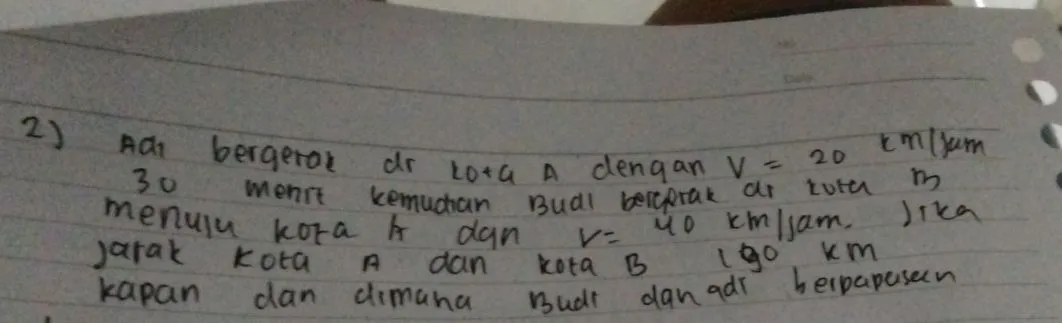 2) Adi bergerak dr kota A dengan V = 20 km/jam
30 menit kemudian Budi bergerak dr kota B
menuju kota A dgn V= 40 km/jam. Jika
jarak kota A dan kota B 190 km
kapan dan dimana Budi dan adi berpapasan